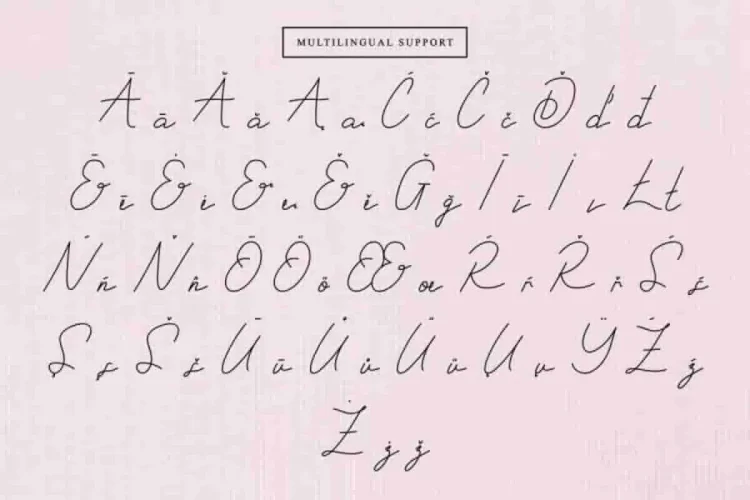 MULTILINGUAL SUPPORT
Ā ā Ă ă Ą ą Ć ć Č č Ď ď đ
Ē ē Ė ė Ę ę Ě ě Ğ ğ Ī ī İ ı Ł ł
Ń ń Ň ň Ō Ő ő Œ œ Ŕ ŕ Ř ř Ś ś
Ş ş Š š Ū ū Ů ů Ű ű Ų ų Ÿ Ź ź
Ż ż ž